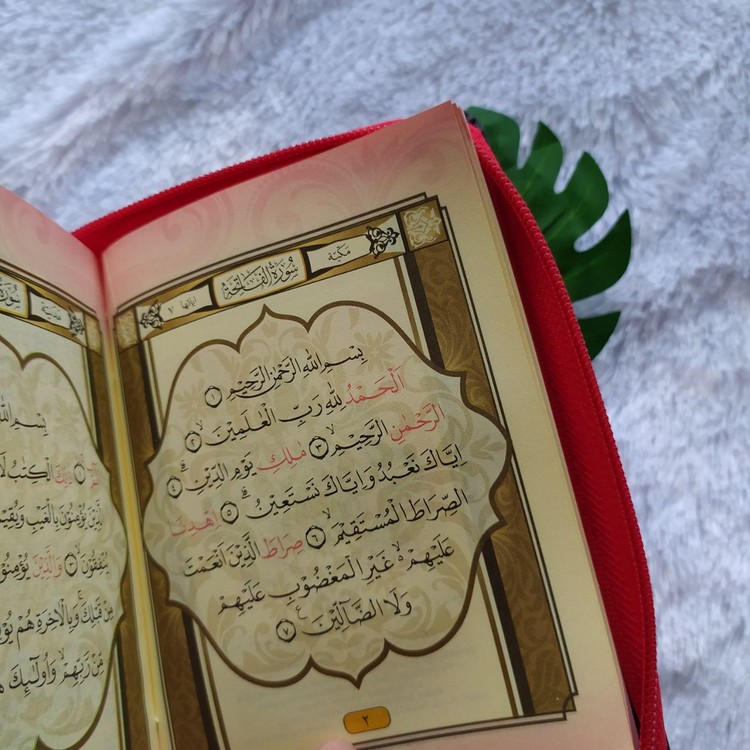 مَكِّيَّة
سُوْرَةُ الْفَاتِحَةِ
اٰيَاتُهَا ٧
بِسْمِ اللهِ الرَّحْمٰنِ الرَّحِيْمِ ۝١
اَلْحَمْدُ لِلّٰهِ رَبِّ الْعٰلَمِيْنَ ۝٢
الرَّحْمٰنِ الرَّحِيْمِ ۝٣ مٰلِكِ يَوْمِ الدِّيْنِ ۝٤
اِيَّاكَ نَعْبُدُ وَاِيَّاكَ نَسْتَعِيْنُ ۝٥ اِهْدِنَا
الصِّرَاطَ الْمُسْتَقِيْمَ ۝٦ صِرَاطَ الَّذِيْنَ اَنْعَمْتَ
عَلَيْهِمْ غَيْرِ الْمَغْضُوْبِ عَلَيْهِمْ
وَلَا الضَّآلِّيْنَ ۝٧
٢
مَدَنِيَّة
بِسْمِ
ذٰلِكَ الْكِتٰبُ
الَّذِيْنَ يُؤْمِنُوْنَ بِالْغَيْبِ
يُنْفِقُوْنَ ۝٣ وَالَّذِيْنَ
مِنْ قَبْلِكَ وَبِالْاٰخِرَةِ هُمْ
مِّنْ رَّبِّهِمْ وَاُولٰٓئِكَ